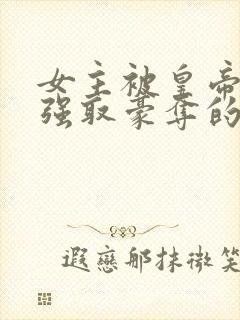 女主被皇帝
强取豪夺的
遐戀那抹微笑